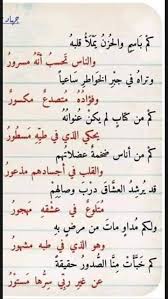 كم باسمٍ والحُزنُ يَملأُ قلبهُ
والناس تحسب أنَّهُ مسرورُ
وتراهُ في جبْرِ الخواطرِ ساعياً
وفؤادُه متصدّعٌ مكسورُ
كم من كتابٍ لم يكن عنوانُه
يحكي الذي في طيِّهِ مسطورُ
كم من أُناسٍ ضخمةٌ عضلاتُهم
والقلب في أجسادهم مذعورُ
قد يُرشدُ العشاقَ دربَ وصالهم
متلوعٌ في عشقهِ مهجورُ
ولكم مُداوٍ ماتَ من مرضٍ بهِ
وهو الذي في طبه مشهورُ
كم خبَّأتْ منَّا الصدورُ حقيقةً
عن غير ربي سِرُّها مَستورُ